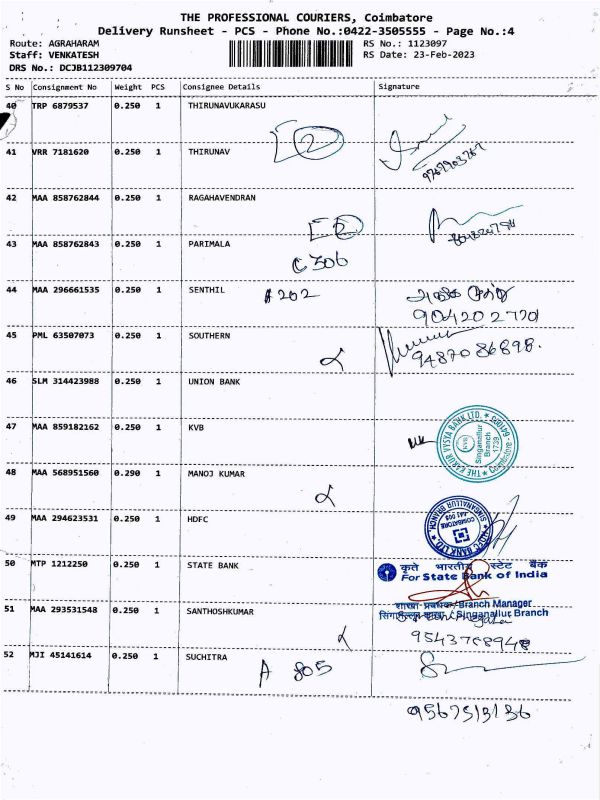 THE PROFESSIONAL COURIERS, Coimbatore
Delivery Runsheet - PCS - Phone No.:0422-3505555 - Page No.:4
Route: AGRAHARAM RS No.: 1123097
Staff: VENKATESH RS Date: 23-Feb-2023
DRS No.: DCJB112309704
S No Consignment No Weight PCS Consignee Details Signature
40 TRP 6879537 0.250 1 THIRUNAVUKARASU
2
41 VRR 7181620 0.250 1 THIRUNAV
42 MAA 858762844 0.250 1 RAGAHAVENDRAN
2
43 MAA 858762843 0.250 1 PARIMALA
C 306
44 MAA 296661535 0.250 1 SENTHIL A 202
904202770
45 PML 63507073 0.250 1 SOUTHERN
9487086898.
46 SLM 314423988 0.250 1 UNION BANK
47 MAA 859182162 0.250 1 KVB
THE KARUR VYSYA BANK LTD. Singanallur Branch 1739 Coimbatore - 641005
48 MAA 568951560 0.290 1 MANOJ KUMAR
49 MAA 294623531 0.250 1 HDFC
HDFC BANK LTD. SINGANALLUR BRANCH. COIMBATORE 641 005
50 MTP 1212250 0.250 1 STATE BANK
कृते भारतीय स्टेट बैंक
For State Bank of India
51 MAA 293531548 0.250 1 SANTHOSHKUMAR
शाखा प्रबंधक/Branch Manager
Singanallur Branch
9543768948
52 MJI 45141614 0.250 1 SUCHITRA
A 805
9567513136